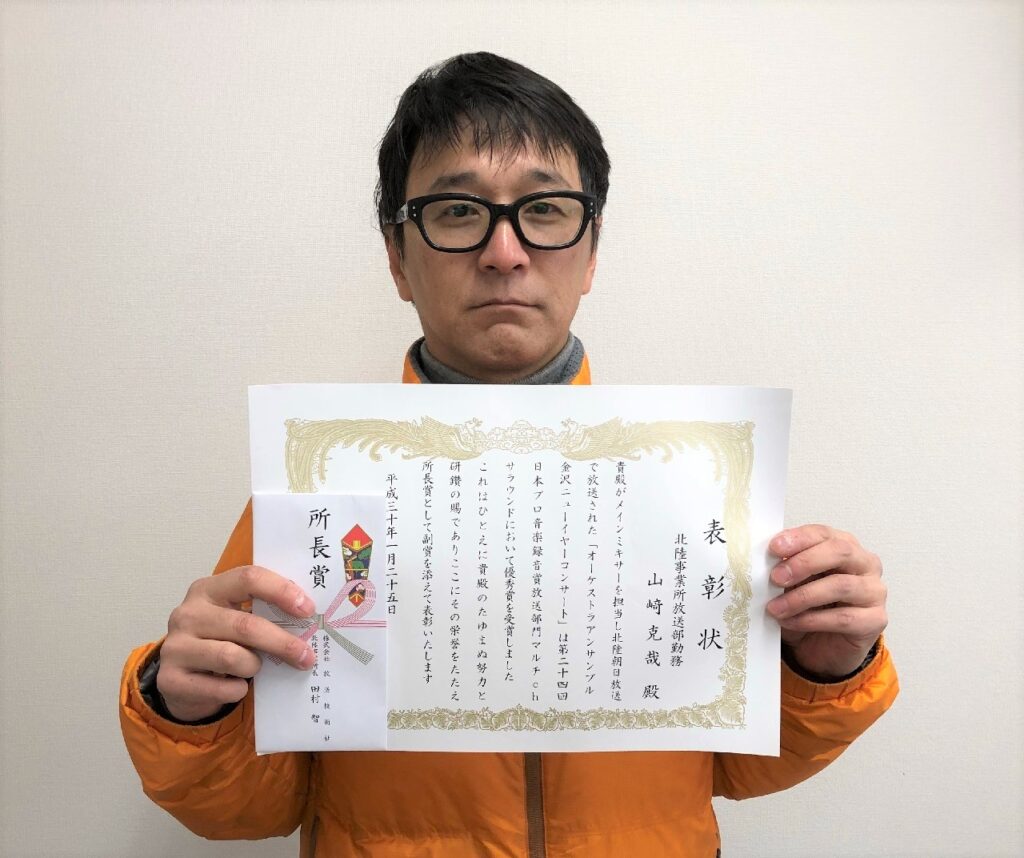 表彰状
北陸事業所放送部勤務
山崎克哉 殿
貴殿がメインミキサーを担当し北陸朝日放送
で放送された「オーケストラアンサンブル
金沢ニューイヤーコンサート」は第二十四回
日本プロ音楽録音賞放送部門マルチch
サラウンドにおいて優秀賞を受賞しました
これはひとえに貴殿のたゆまぬ努力と
研鑽の賜でありここにその栄誉をたたえ
所長賞として副賞を添えて表彰いたします
平成三十年一月二十五日
所長賞
株式会社 放送技術社
田村 智